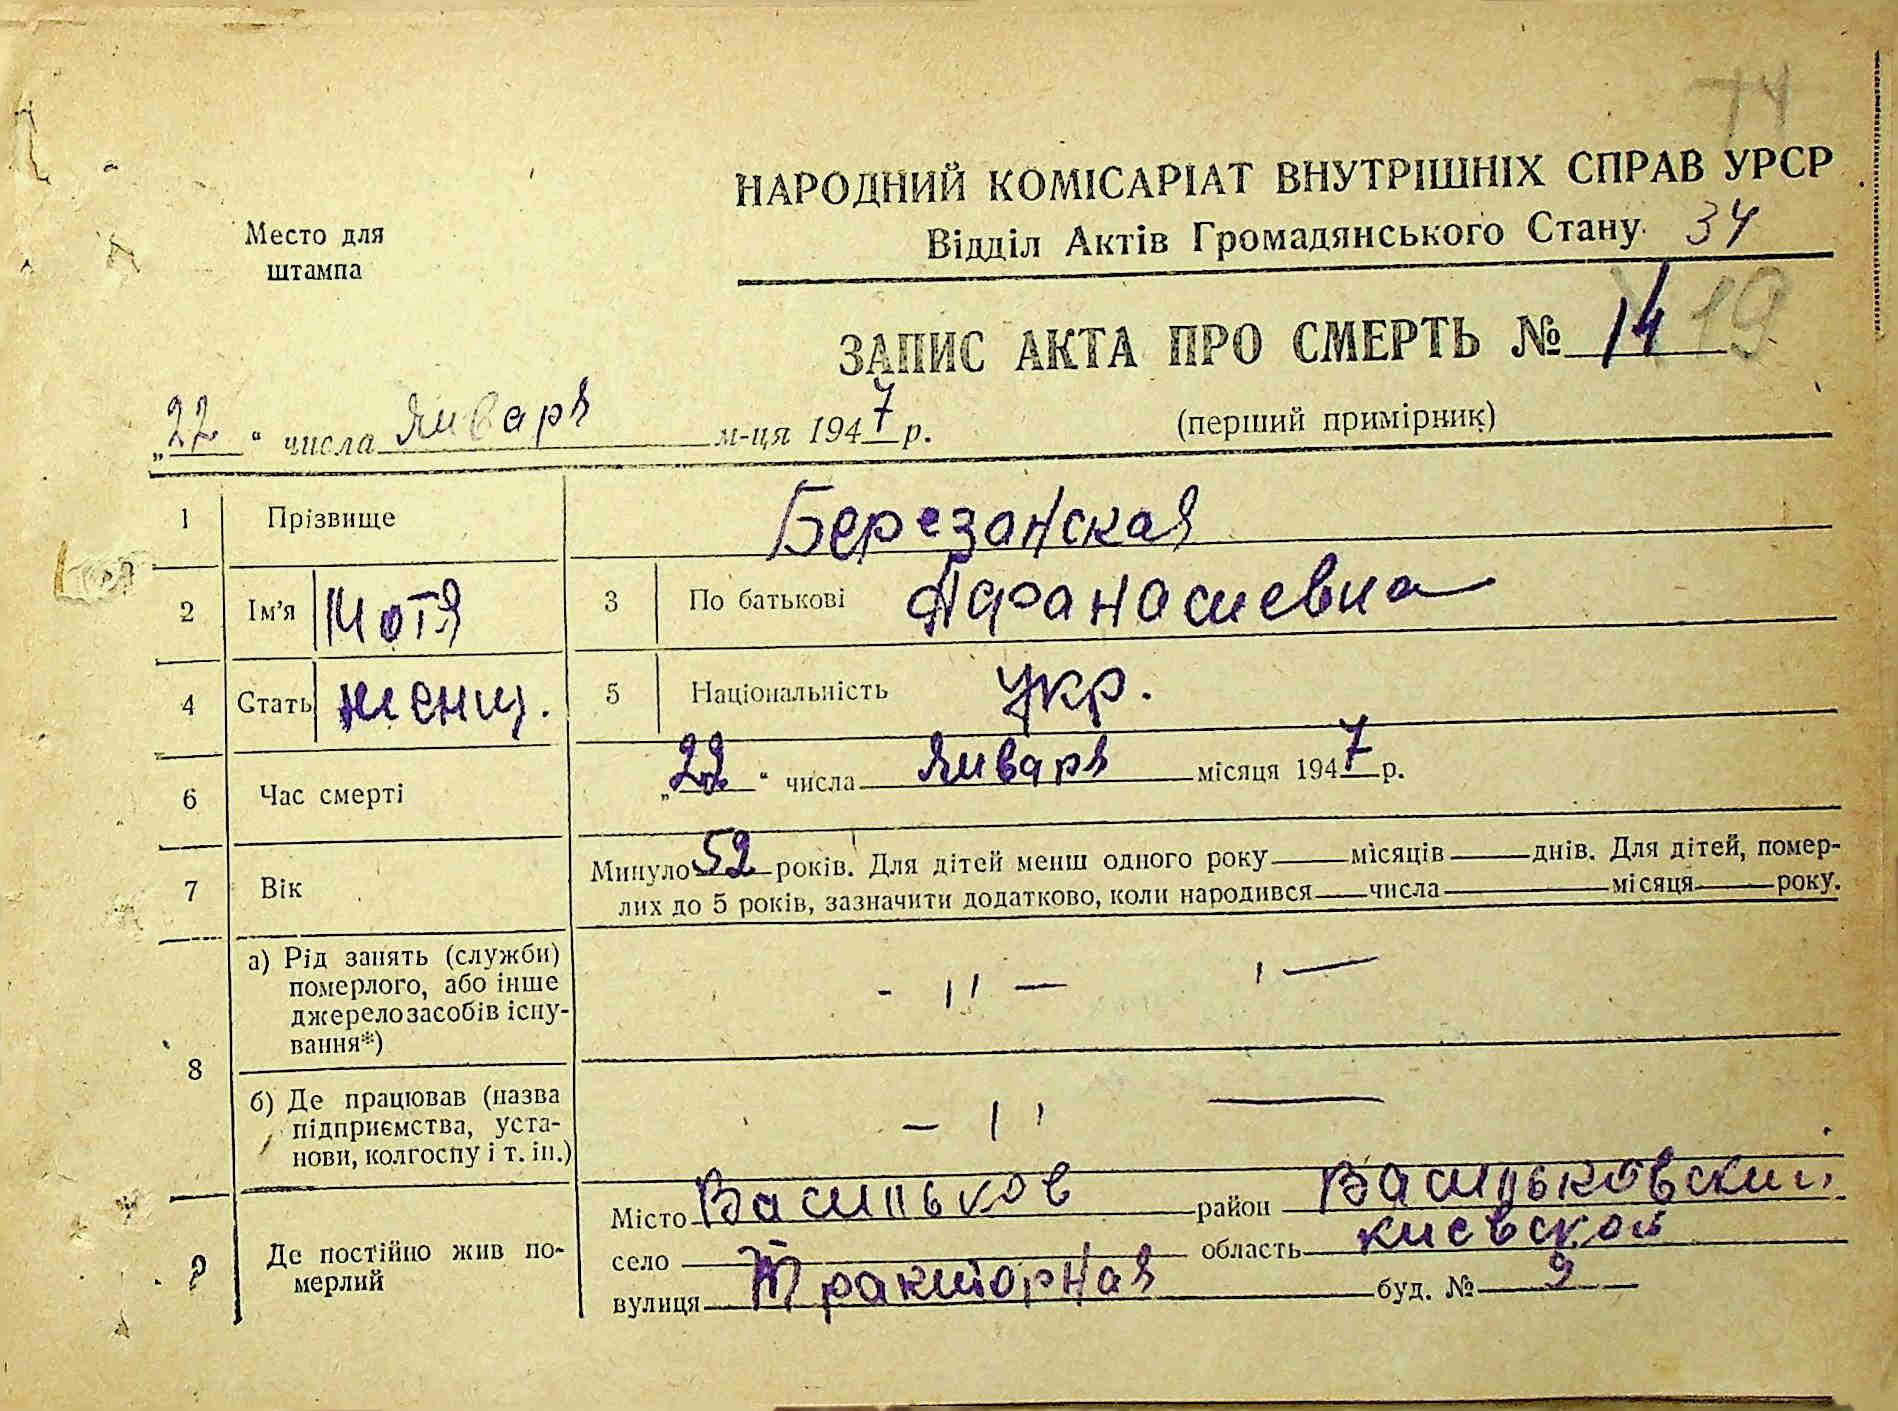 74
НАРОДНИЙ КОМІСАРІАТ ВНУТРІШНІХ СПРАВ УРСР
Место для
штампа
Відділ Актів Громадянського Стану 34
ЗАПИС АКТА ПРО СМЕРТЬ № 14 19
„22“ числа Января м-ця 1947 р.
(перший примірник)
1 Прізвище Березанская
2 Ім'я Мотя 3 По батькові Афанасиевна
4 Стать женщ. 5 Національність укр.
6 Час смерті „22“ числа Января місяця 1947 р.
7 Вік Минуло 52 років. Для дітей менш одного року — місяців — днів. Для дітей, помер-
лих до 5 років, зазначити додатково, коли народився — числа — місяця — року.
8 а) Рід занять (служби)
померлого, або інше
джерело засобів існу-
вання*)
- '' — '—
б) Де працював (назва
підприємства, уста-
нови, колгоспу і т. ін.)
- '' —
9 Де постійно жив по-
мерлий
Місто Васильков район Васильковский
село — область киевской
вулиця Тракторная буд. № 9